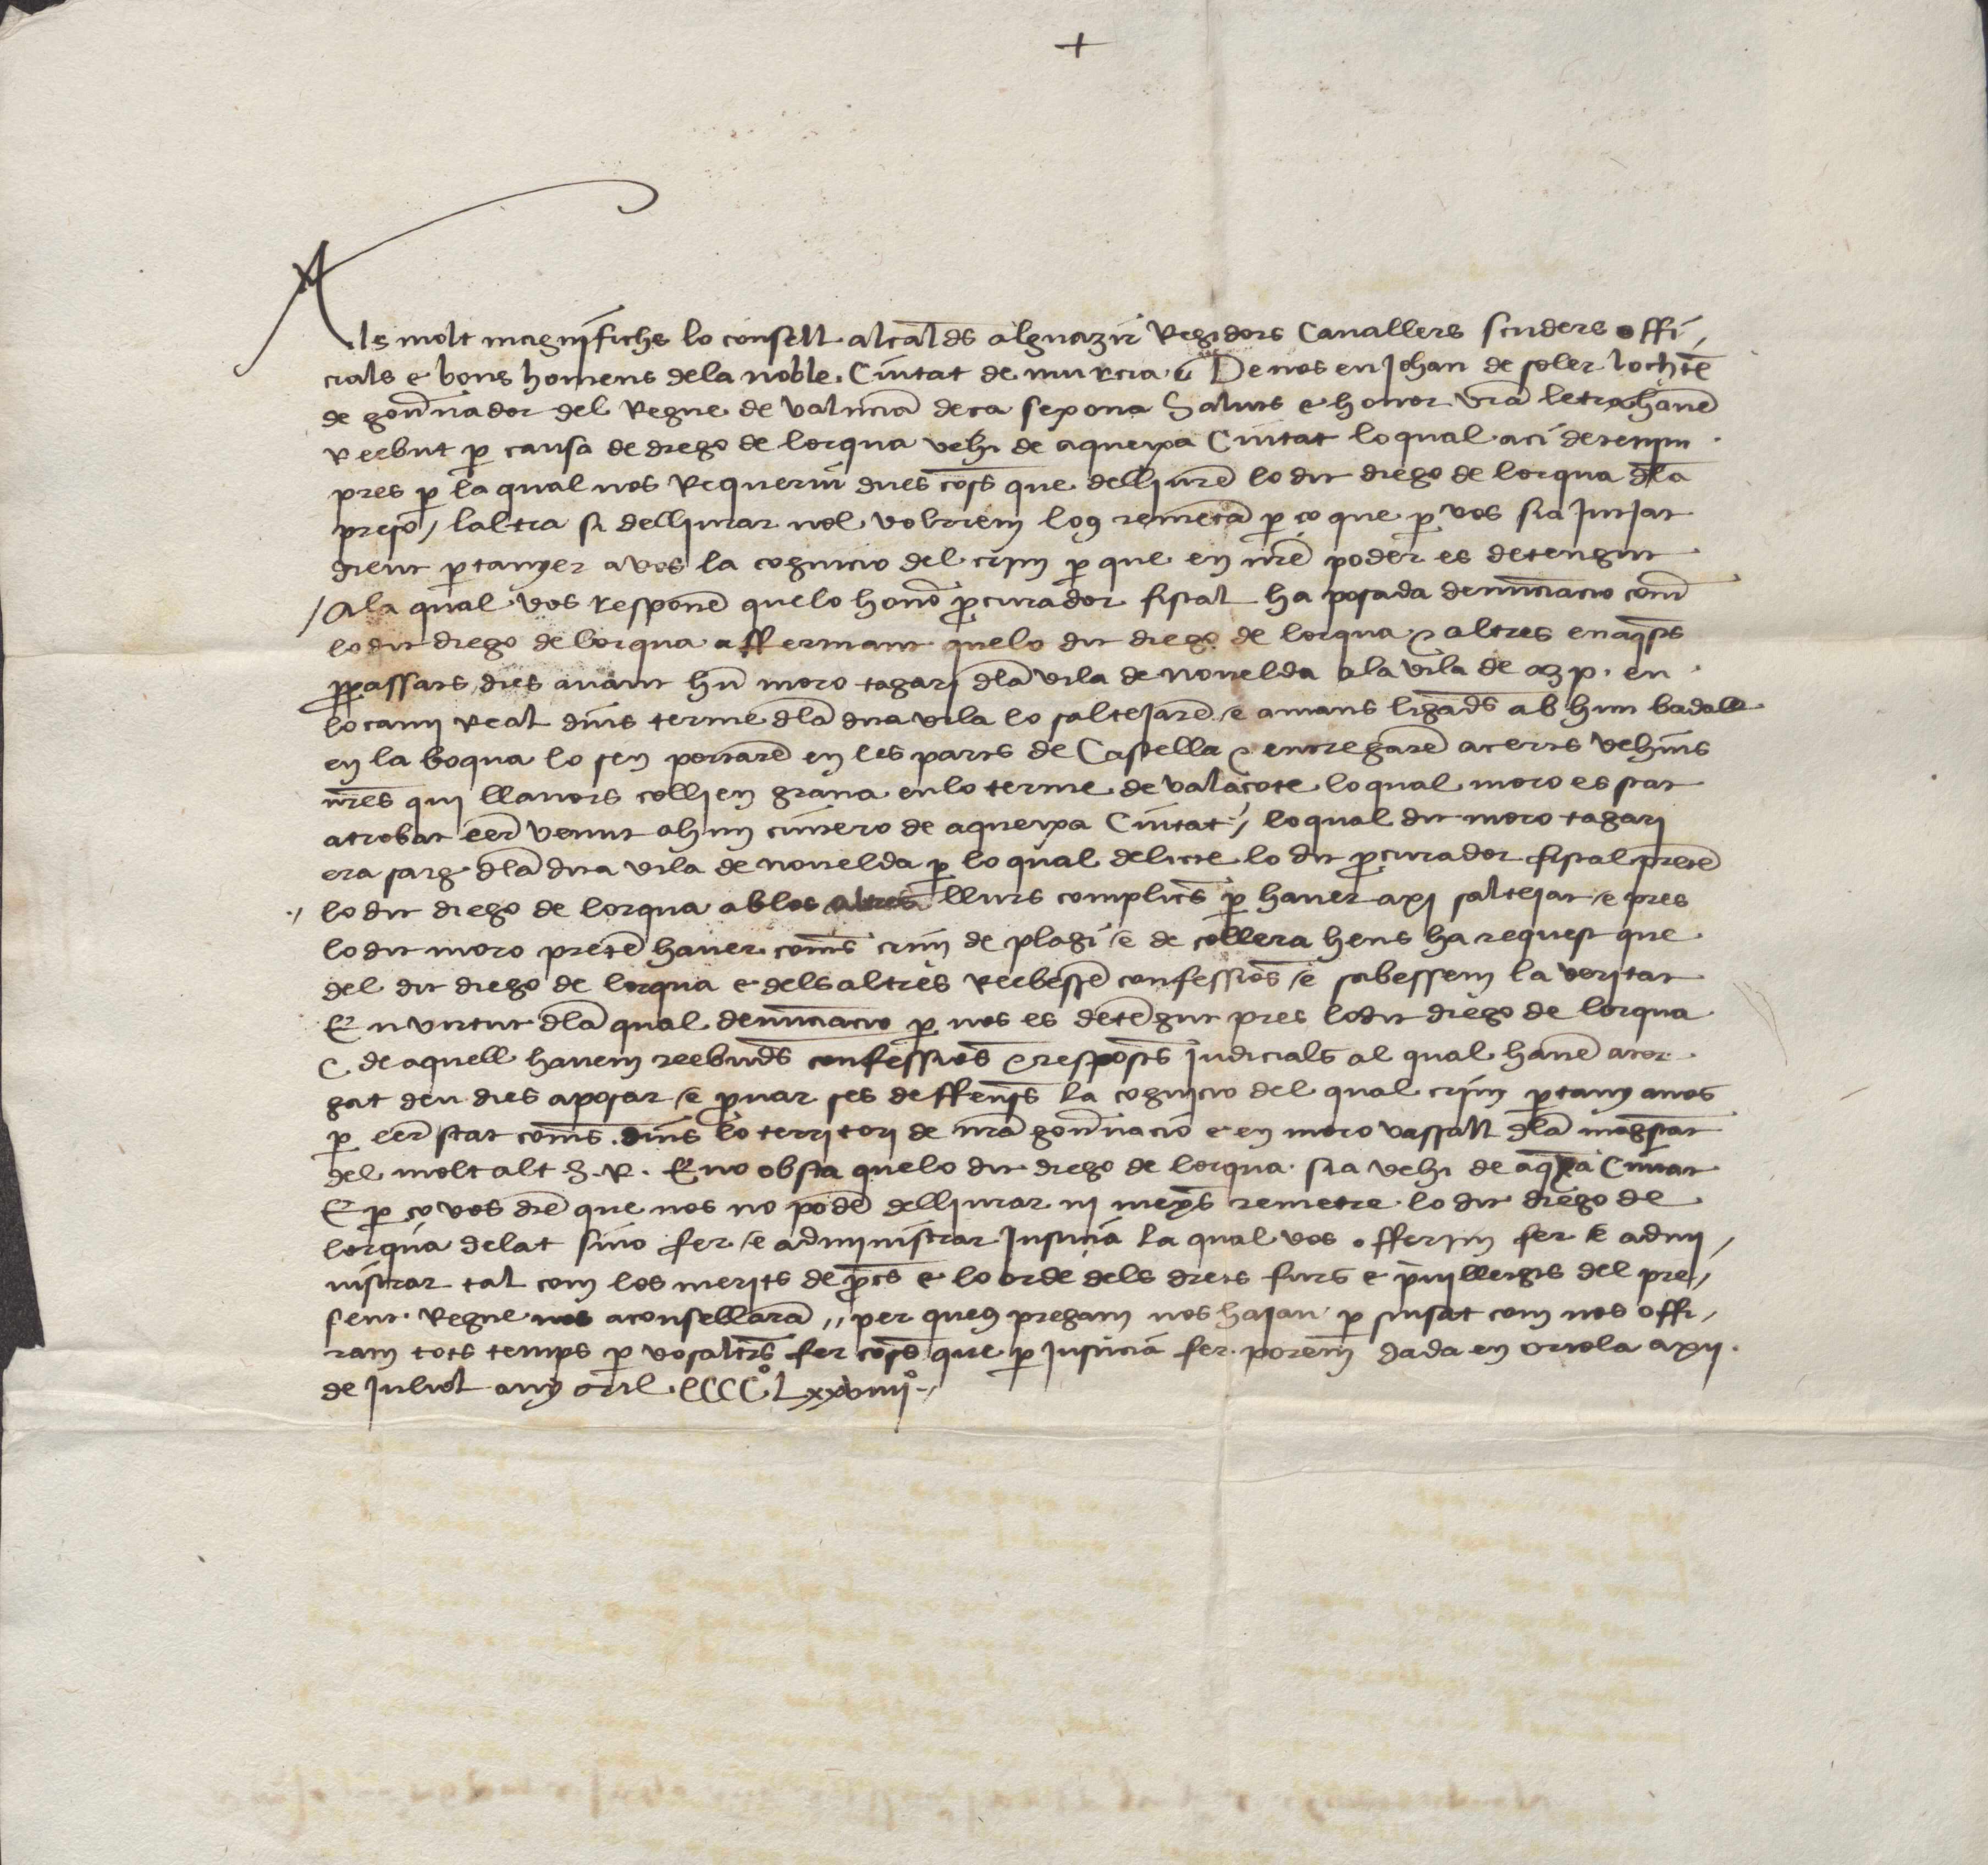 +
Als molt magnifichs lo consell alcalds alguazir Regidors Cauallers scuders offi/
cials e bons homens dela noble Ciutat de murcia De nos en Johan de soler lochtē
de gou̅nador del Regne de valencia deca sexona Saluts e honor vr̄a letra hauē
reebut p̱ causa de diego de lorqua vehi de aqueixa Ciutat loqual aci detenim
pres p̱ la qual nos Requeriu dues coſs que delliurē lo dit diego de lorqua dla
preſo / laltra si delliurar nol volriem lo9 remetā p̱ ço que p̱ vos sia Jutjat
dient p̱tanyer a vos la cognicio del crim p̱ que en nr̄e poder es detengut
/ Ala qual vos responē quelo hono p̱curador fiscal ha posada denūciacio cont
lo dit diego de lorqua affermant quelo dit diego de lorqua e altres en aq̄sts
ppassats dies anant hū moro tagari dla vila de nouelda ala vila de azp. en
lo cami Real dīs terme dla dita vila lo saltejarē e amans ligads ab hun badall
en la boqua lo sen portarē en les parts de Castella e entregarē a certs vehins
vr̄es qui llauors collien grana en lo terme de valacote loqual moro es stat
atrobat ēer venut ahun cintero de aqueixa Ciutat / loqual dit moro tagari
era sarg dla dita vila de nouelda p̱ lo qual delicte lo dit p̱curador fiscal pretē
./ lo dit diego de lorqua ab los altres llurs complicˢ p̱ hauer axi saltejat e pres
lo dit moro pretē hauer comˢ crim de plagi e de collera hens ha request que
del dit diego de lorqua e dels altres reebessē confessioˢ e sabessem la veritat
E n virtut dla qual denūciacio p̱ nos es detēgut pres lo dit diego de lorqua
e de aquell hauem reebuds confessioˢ e respostˢ judicials al qual hauē ator
gat deu dies a posar e p̱uar ses deffenˢˢ la cognicio del qual crim p̱tany a nos
p̱ ēer stat comˢ dīs lo territori de nr̄a gou̅nacio e en moro vassall dla magestat
del molt alt S. R. E no obsta quelo dit diego de lorqua sia vehi de aq̄xa Ciutat
E p̱ ço vos diē que nos no podē delliurar ni meyˢ remetre lo dit diego de
lorqua delat sino fer e administrar Justicia la qual vos offerim fer e admi/
nistrar tal com los merits de p̱cs e lo orde dels drets furs e p̱uillegis del pre/
sent Regne nos aconsellarā // per que9 pregam nos hajau p̱ scusat com nos offi/
ram tots temps p̱ vosaltrˢ fer coſs que p̱ Justicia fer porem dada en oriola a xii
de Juliol any Mil CCCC Lxxviiii°